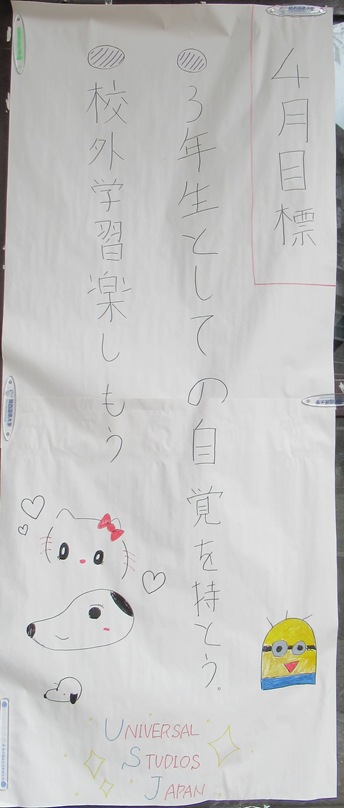 4月目標
3年生としての自覚を持とう。
校外学習楽しもう
UNIVERSAL
STUDIOS
JAPAN